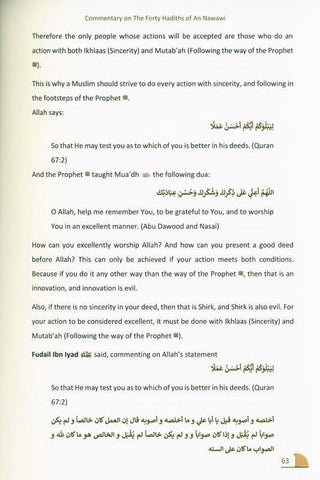 Commentary on The Forty Hadiths of An Nawawi
Therefore the only people whose actions will be accepted are those who do an
action with both Ikhlaas (Sincerity) and Mutab'ah (Following the way of the Prophet
ﷺ).
This is why a Muslim should strive to do every action with sincerity, and following in
the footsteps of the Prophet ﷺ.
Allah says:
لِيَبْلُوَكُمْ أَيُّكُمْ أَحْسَنُ عَمَلًا
So that He may test you as to which of you is better in his deeds. (Quran
67:2)
And the Prophet ﷺ taught Mua'dh the following dua:
اللَّهُمَّ أَعِنِّي عَلَى ذِكْرِكَ وَشُكْرِكَ وَحُسْنِ عِبَادَتِكَ
O Allah, help me remember You, to be grateful to You, and to worship
You in an excellent manner. (Abu Dawood and Nasai)
How can you excellently worship Allah? And how can you present a good deed
before Allah? This can only be achieved if your action meets both conditions.
Because if you do it any other way than the way of the Prophet ﷺ, then that is an
innovation, and innovation is evil.
Also, if there is no sincerity in your deed, then that is Shirk, and Shirk is also evil. For
your action to be considered excellent, it must be done with Ikhlaas (Sincerity) and
Mutab'ah (Following the way of the Prophet ﷺ).
Fudail Ibn Iyad said, commenting on Allah's statement
لِيَبْلُوَكُمْ أَيُّكُمْ أَحْسَنُ عَمَلًا
So that He may test you as to which of you is better in his deeds. (Quran
67:2)
أخلصه و أصوبه قيل يا أبا علي و ما أخلصه و أصوبه قال إن العمل كان خالصاً و لم يكن
صواباً لم يُقْبَل و إذا كان صواباً و لم يكن خالصاً لم يُقْبَل و الخالص هو ما كان لله و
الصواب ما كان على السنه
63